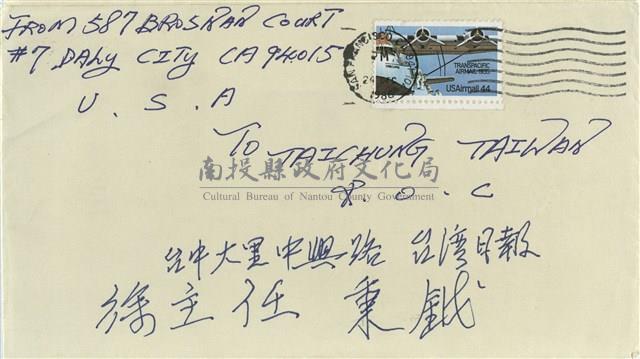 FROM 587 BROSNAN COURT
#7 DALY CITY CA 94015
U.S.A
TRANSPACIFIC
AIRMAIL 1935
USAirmail 44
TO TAICHUNG TAIWAN
R.O.C
南投縣政府文化局
Cultural Bureau of Nantou County Government
台中大里中興路 台湾日報
徐主任 秉鉞